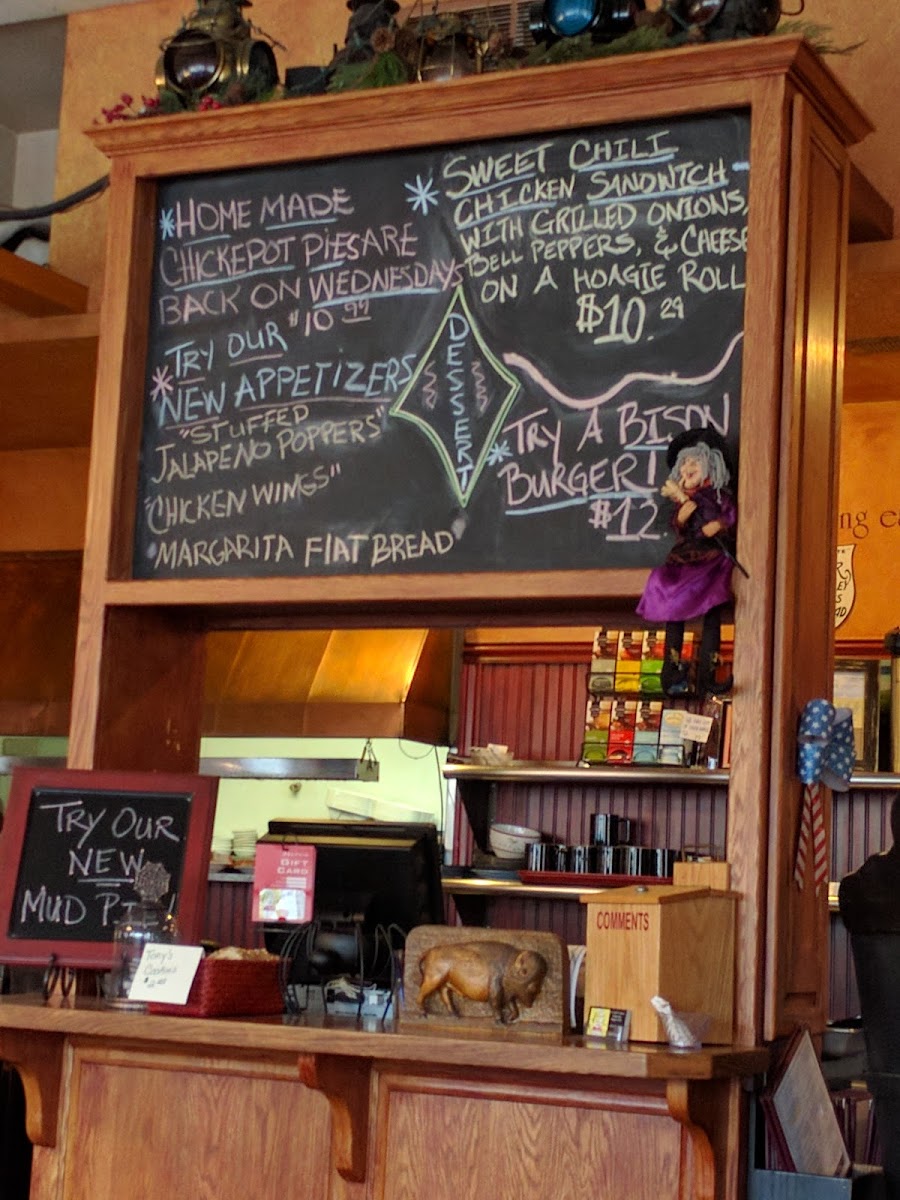 *HOME MADE
CHICKEPOT PIES ARE
BACK ON WEDNESDAYS
$10 99
*TRY OUR
NEW APPETIZERS
"STUFFED
JALAPENO POPPERS"
"CHICKEN WINGS"
MARGARITA FLAT BREAD
DESSERT
*SWEET CHILI
CHICKEN SANDWITCH -
WITH GRILLED ONIONS,
BELL PEPPERS, & CHEESE
ON A HOAGIE ROLL
$10.29
*TRY A BISON
BURGER!
$12
TRY OUR
NEW
MUD
GIFT
CARD
Tory's
Cookies
COMMENTS
ng ea